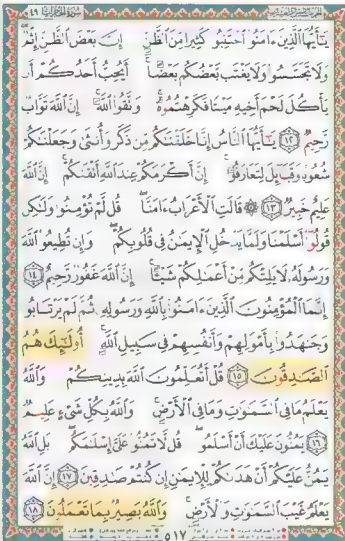 يَٰٓأَيُّهَا ٱلَّذِينَ ءَامَنُوا۟ ٱجْتَنِبُوا۟ كَثِيرًا مِّنَ ٱلظَّنِّ إِنَّ بَعْضَ ٱلظَّنِّ إِثْمٌ
وَلَا تَجَسَّسُوا۟ وَلَا يَغْتَب بَّعْضُكُم بَعْضًا أَيُحِبُّ أَحَدُكُمْ أَن
يَأْكُلَ لَحْمَ أَخِيهِ مَيْتًا فَكَرِهْتُمُوهُ وَٱتَّقُوا۟ ٱللَّهَ إِنَّ ٱللَّهَ تَوَّابٌ
رَّحِيمٌ ١٢ يَٰٓأَيُّهَا ٱلنَّاسُ إِنَّا خَلَقْنَٰكُم مِّن ذَكَرٍ وَأُنثَىٰ وَجَعَلْنَٰكُمْ
شُعُوبًا وَقَبَآئِلَ لِتَعَارَفُوٓا۟ إِنَّ أَكْرَمَكُمْ عِندَ ٱللَّهِ أَتْقَىٰكُمْ إِنَّ ٱللَّهَ
عَلِيمٌ خَبِيرٌ ١٣ ۞ قَالَتِ ٱلْأَعْرَابُ ءَامَنَّا قُل لَّمْ تُؤْمِنُوا۟ وَلَٰكِن
قُولُوٓا۟ أَسْلَمْنَا وَلَمَّا يَدْخُلِ ٱلْإِيمَٰنُ فِى قُلُوبِكُمْ وَإِن تُطِيعُوا۟ ٱللَّهَ
وَرَسُولَهُۥ لَا يَلِتْكُم مِّنْ أَعْمَٰلِكُمْ شَيْـًٔا إِنَّ ٱللَّهَ غَفُورٌ رَّحِيمٌ ١٤
إِنَّمَا ٱلْمُؤْمِنُونَ ٱلَّذِينَ ءَامَنُوا۟ بِٱللَّهِ وَرَسُولِهِۦ ثُمَّ لَمْ يَرْتَابُوا۟
وَجَٰهَدُوا۟ بِأَمْوَٰلِهِمْ وَأَنفُسِهِمْ فِى سَبِيلِ ٱللَّهِ أُو۟لَٰٓئِكَ هُمُ
ٱلصَّٰدِقُونَ ١٥ قُلْ أَتُعَلِّمُونَ ٱللَّهَ بِدِينِكُمْ وَٱللَّهُ
يَعْلَمُ مَا فِى ٱلسَّمَٰوَٰتِ وَمَا فِى ٱلْأَرْضِ وَٱللَّهُ بِكُلِّ شَىْءٍ عَلِيمٌ
١٦ يَمُنُّونَ عَلَيْكَ أَنْ أَسْلَمُوا۟ قُل لَّا تَمُنُّوا۟ عَلَىَّ إِسْلَٰمَكُم بَلِ ٱللَّهُ
يَمُنُّ عَلَيْكُمْ أَنْ هَدَىٰكُمْ لِلْإِيمَٰنِ إِن كُنتُمْ صَٰدِقِينَ ١٧ إِنَّ ٱللَّهَ
يَعْلَمُ غَيْبَ ٱلسَّمَٰوَٰتِ وَٱلْأَرْضِ وَٱللَّهُ بَصِيرٌۢ بِمَا تَعْمَلُونَ ١٨
٥١٧